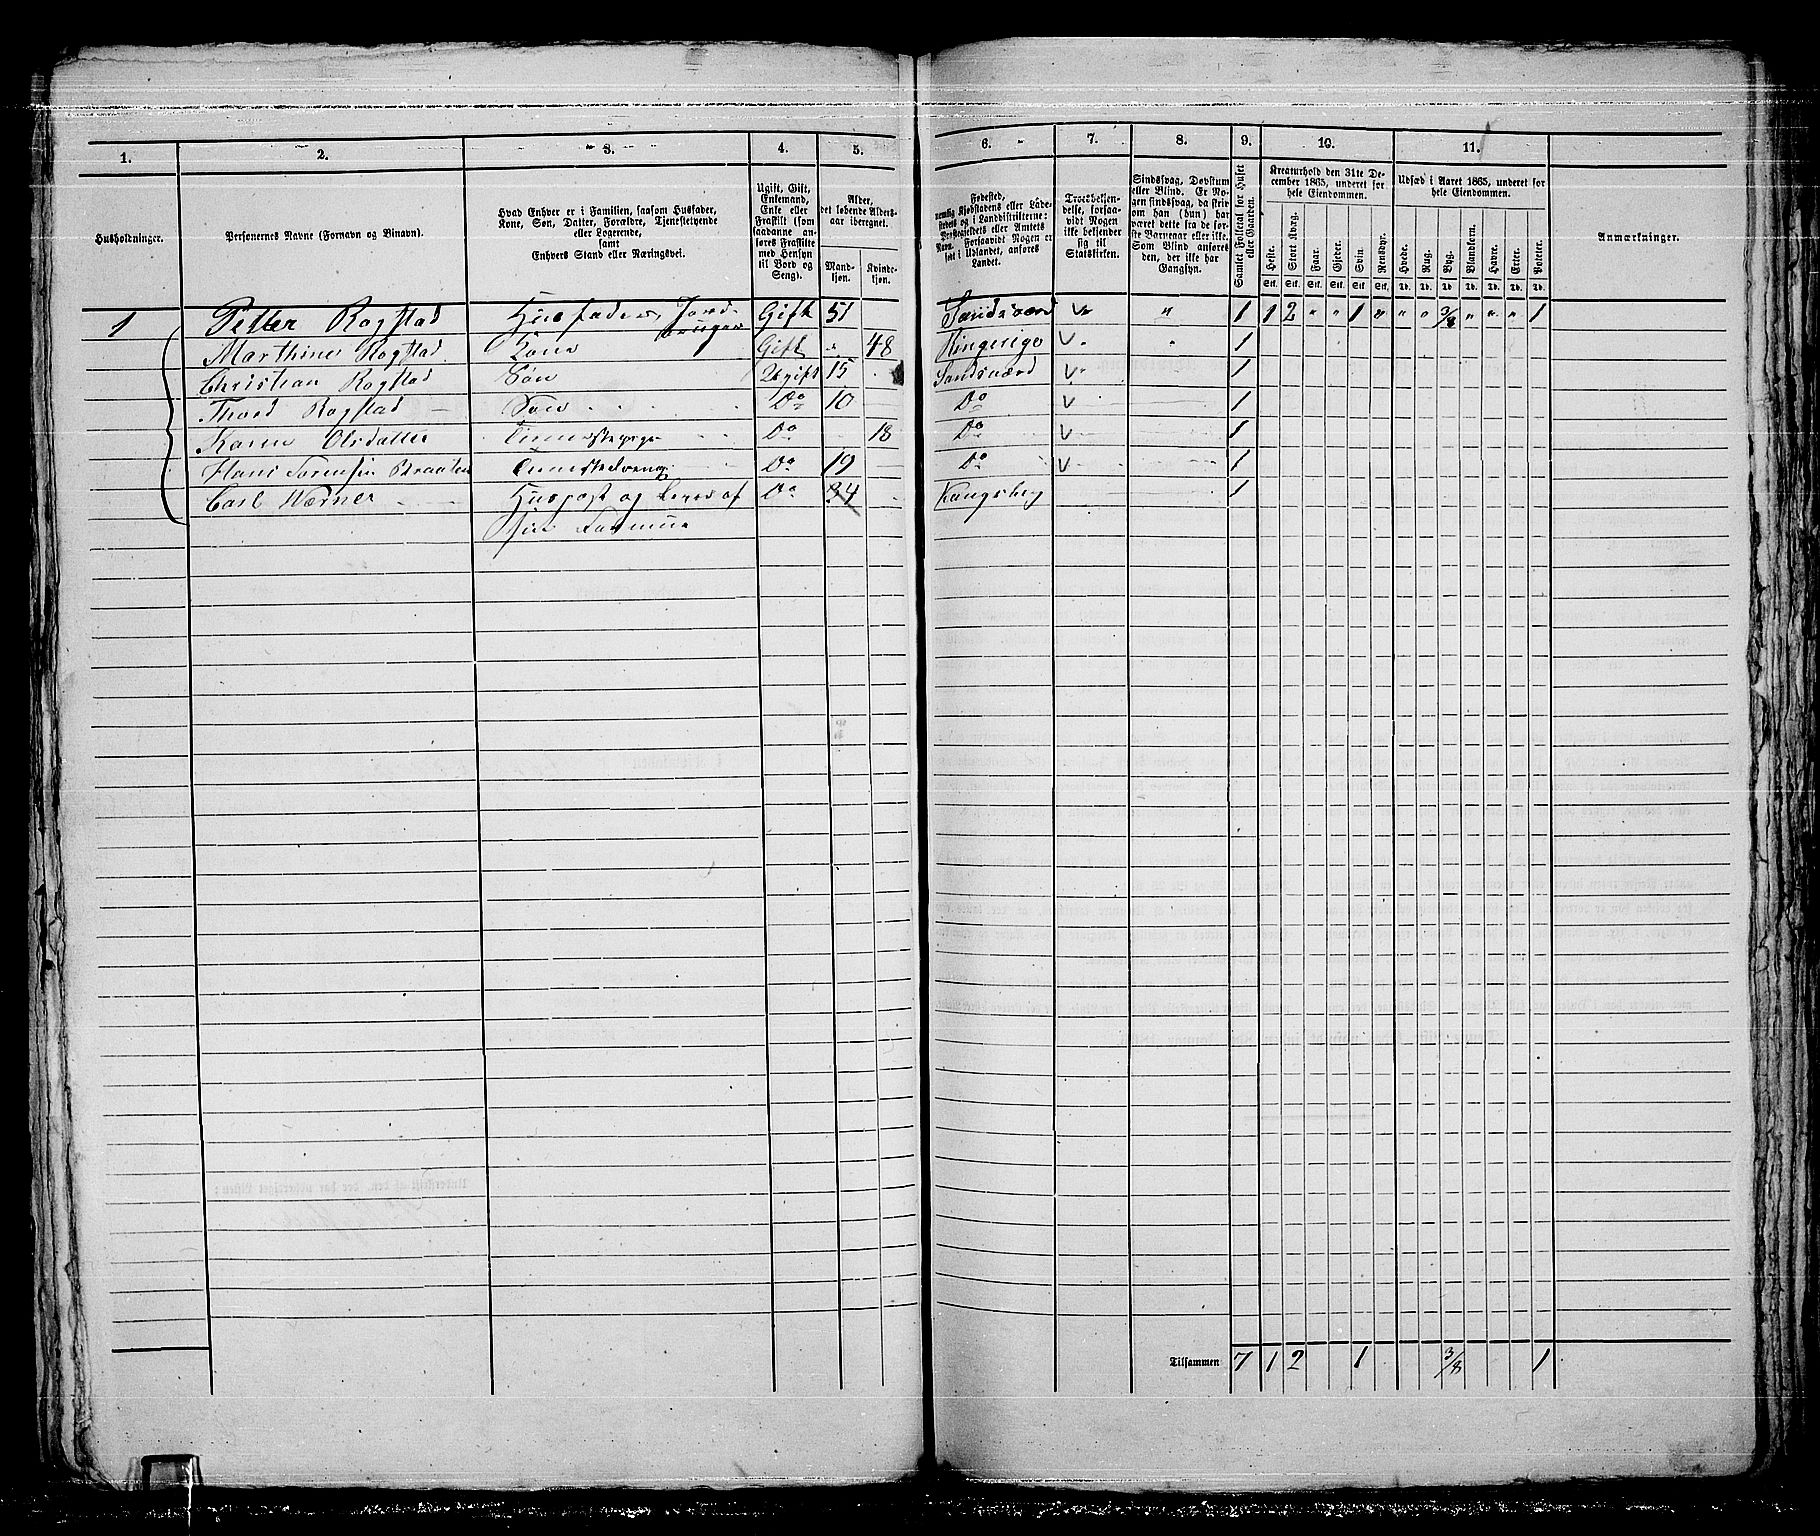 1. 2. 3. 4. 5. 6. 7. 8. 9. 10. 11.
Husholdninger.
Personernes Navne (Fornavn og Binavn).
Hvad Enhver er i Familien, saasom Husfader,
Kone, Søn, Datter, Forældre, Tjenestetyende
eller Logerende,
samt
Enhvers Stand eller Næringsvei.
Ugift, Gift,
Enkemand,
Enke eller
Fraskilt (som
saadanne an-
føres Fraskilte
med Hensyn
til Bord og
Seng).
Alder,
det løbende Alders-
aar iberegnet.
Mand-
kjøn.
Kvinde-
kjøn.
Fødested,
nemlig Kjøbstadens eller Lade-
stedets og i Landdistrikterne:
Præstegjeldets eller Amtets
Navn. Forsaavidt Nogen er
født i Udlandet, anføres
Landet.
Troesbekjen-
delse, forsaa-
vidt Nogen
ikke bekjender
sig til
Statskirken.
Sindssvag, Døvstum
eller Blind. Er No-
gen sindssvag, da skriv
om han (hun) har
været dette fra de før-
ste Barneaar eller ikke.
Som Blind anføres
den, der ikke har
Gangsyn.
Samlet Folketal for Huset
eller Gaarden.
Kreaturhold den 31te De-
cember 1865, underet for
hele Eiendommen.
Heste. Stort Kvæg. Faar. Gjeder. Svin. Rensdyr.
Stk. Stk. Stk. Stk. Stk. Stk.
Udsæd i Aaret 1865, underet for
hele Eiendommen.
Hvede. Rug. Byg. Blandkorn. Havre. Erter. Poteter.
Td. Td. Td. Td. Td. Td. Td.
Anmærkninger.
1 Petter Rogstad Husfader, Jord- Gift 51 Sandsværd V " 1 1 2 " " 1 " " " 3/8 " " " 1
bruger
Marthine Rogstad Kone Gift 48 Ringerige V " 1
Christian Rogstad Søn Ugift 15 Sandsværd V 1
Thord Rogstad Søn Do 10 Do V 1
Karen Olsdatter Tjenestepige Do 18 Do V 1
Hans Sørensen Braaten Tjenestedreng Do 19 Do V 1
Carl Wærner Do 34 Kongsberg 1
Tilsammen 7 1 2 1 3/8 1